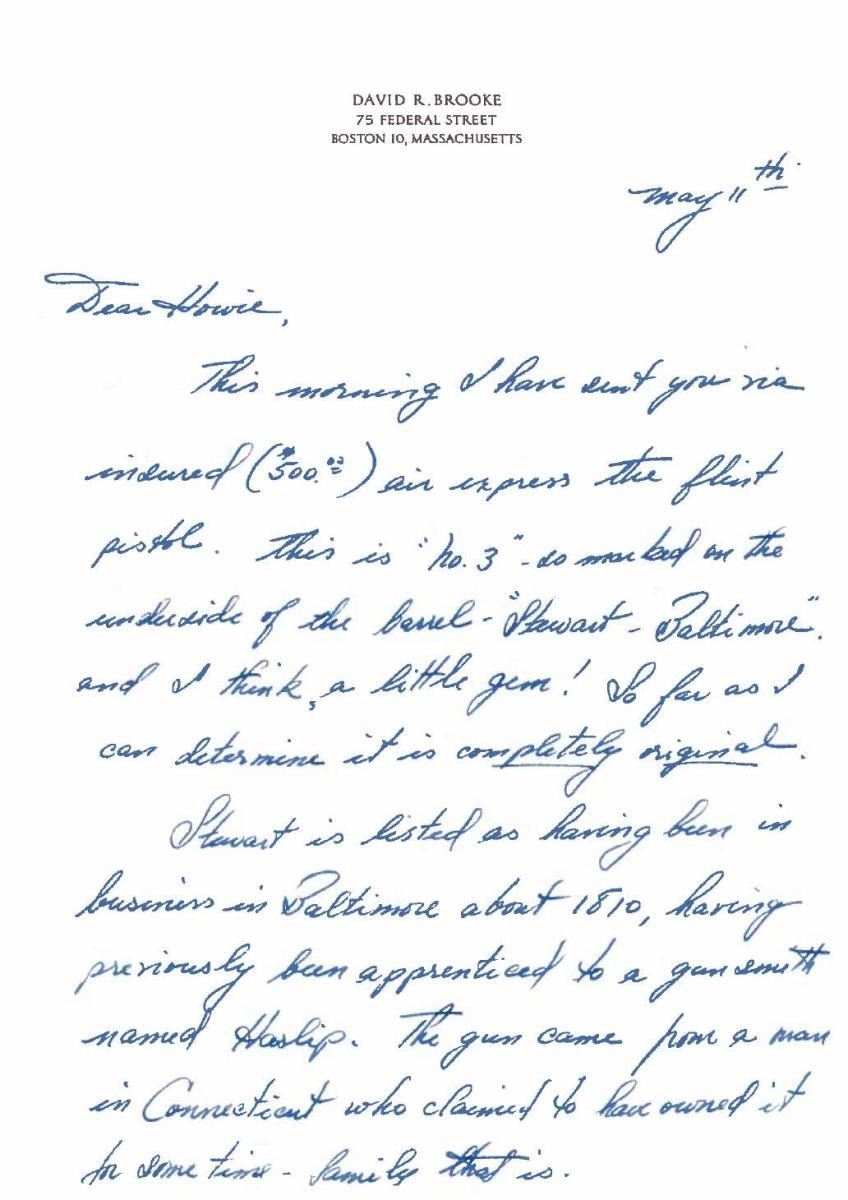 DAVID R. BROOKE
75 FEDERAL STREET
BOSTON 10, MASSACHUSETTS
May 11th
Dear Howie,
This morning I have sent you via
insured ($500.00) air express the flint
pistol. This is "No. 3" - so marked on the
underside of the barrel - "Stewart - Baltimore".
and I think, a little gem! So far as I
can determine it is completely original.
Stewart is listed as having been in
business in Baltimore about 1810, having
previously been apprenticed to a gunsmith
named Haslip. The gun came from a man
in Connecticut who claimed to have owned it
for some time - family that is.